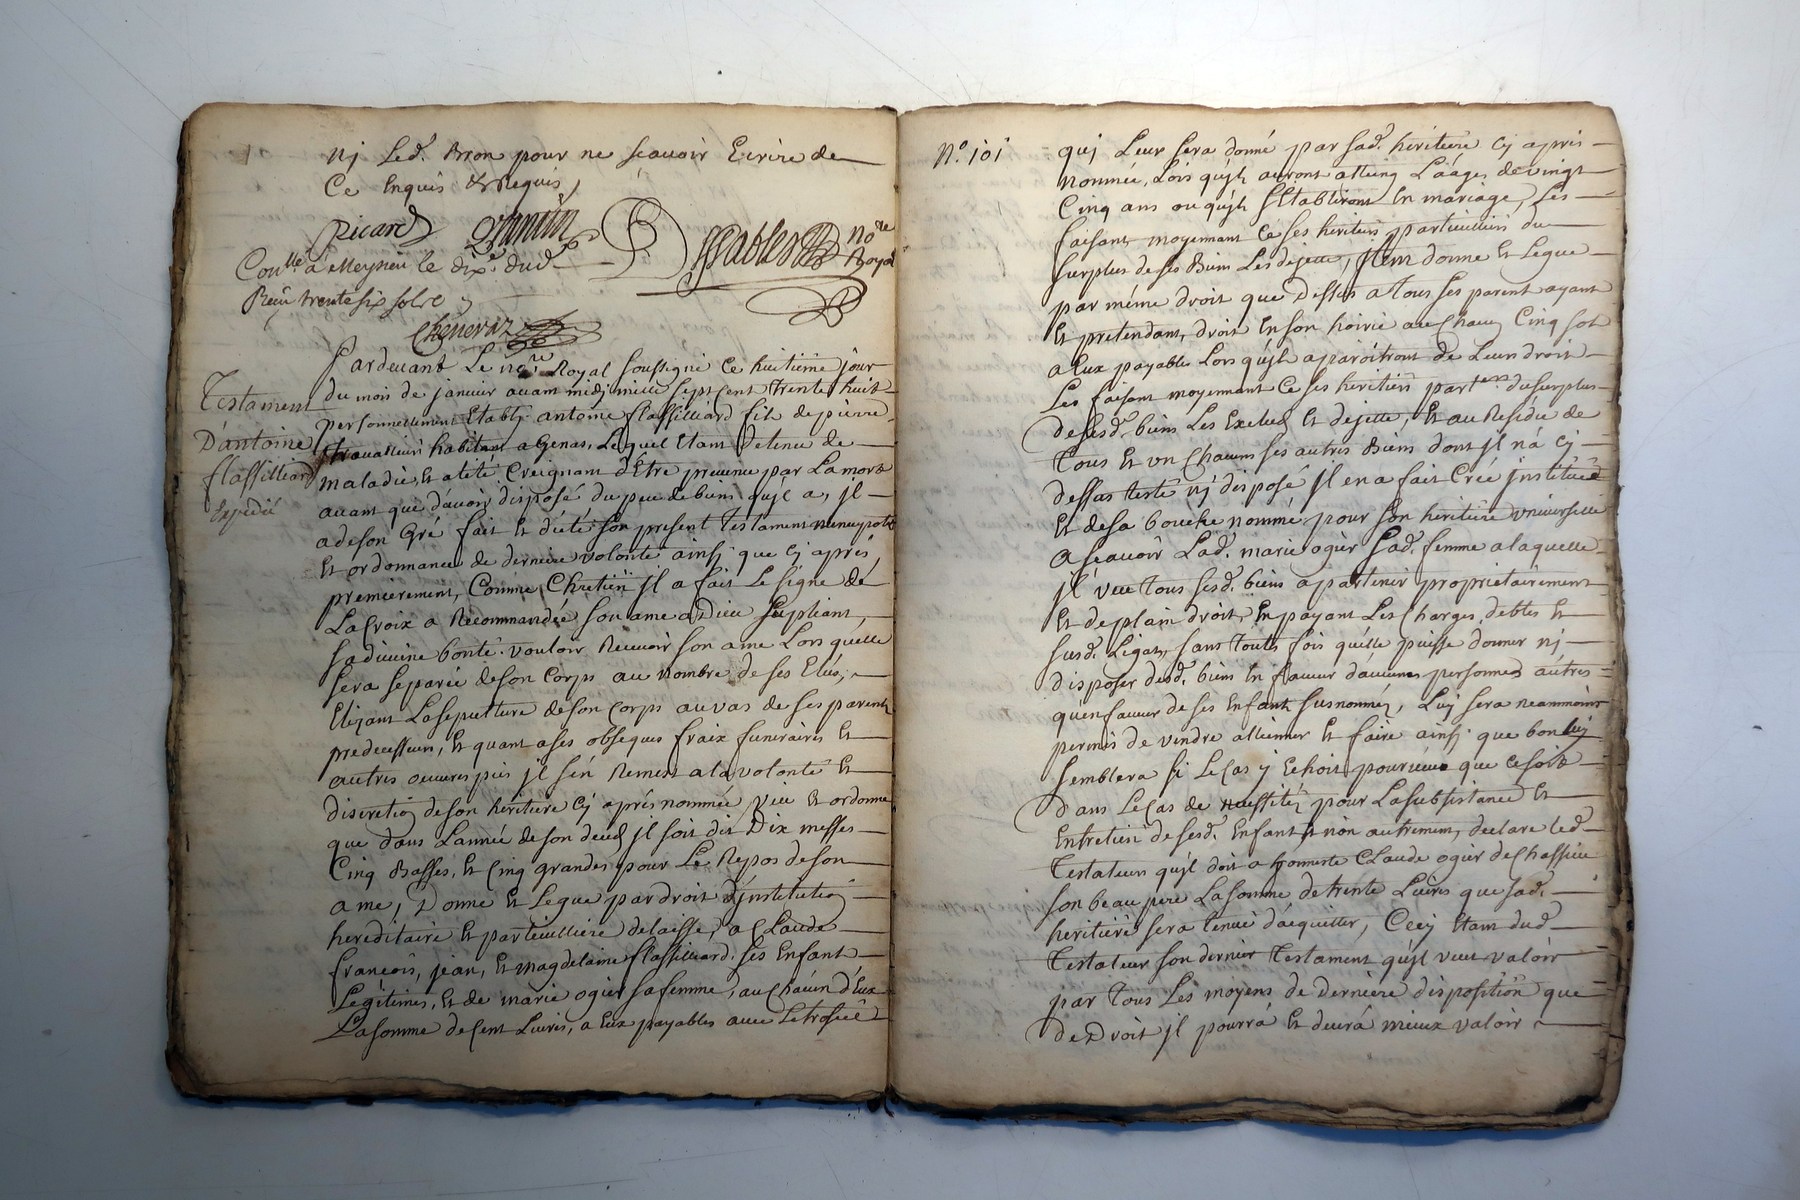 nj Led. Bron pour ne scauoir Ecrire de
Ce Enquis & Requis,
Picard
Sablet No.re Royal
Con.llé a Meyzieu le dix.e dud.
Receu trente six sols
Chenevaz
Pardeuant Le no.re Royal soussigné Ce huitiême jour
du mois de januier auant midj mille sept Cent trente huit
personnellement Etablj antoine flassilliard fils de pierre
trauailleur habitant a Genas, Lequel Etant Detenu de
maladie, Et alité Creignant d'Etre preuenu par La mort
auant que d'auoir disposé du peu de biens qujl a, jl
a de son Gré fait Et dicté son present Testament nuncupatif
Et ordonnance de derniere volonté ainsj que Cj aprés,
premierement, Comme Chretien jl a fait Le signe de
La Croix a Recommandée son ame a Dieu supliant,
sa diuine bonté vouloir Receuoir son ame Lors quelle
sera separée de son Corps au Nombre de ses Elus,
Elizant La sepulture de son Corps au vas de ses parents
predecesseurs, Et quant a ses obseques fraix funeraires Et
autres oeuures pies jl s'en Remest a la volonté Et
discretion de son heritiere Cj aprés nommée, veu Et ordonne
que dans L'année de son deced jl soit dit Dix messes
Cinq Basses, Et Cinq grandes pour Le Repos de son
ame, Donne Et Legue par droit d'jnstitution
hereditaire Et particulliere delaisse, a CLaude
francois, jean, Et magdelaine flassilliard ses Enfant
Legitimes, Et de marie ogier sa femme, a un Chacun d'Eux
La somme de Cent Liures, a Eux payables auec Letrossel
Testament
D'antoine
flassilliard
Expedié
N.o 101
quj Leur sera donné par sad. heritiere Cj aprés
nommée, Lors qujls auront atteing L'aáge de vingt
Cinq ans ou qujls s'Etabliront En mariage, Les
faisant moyennant Ce ses heritiers particulliers du
surplus de ses Biens Les dejette, jtem donne Et Legue
par même droit que Dessus a Tous ses parent ayant
Et pretendant, droit En son hoirie a un Chacun Cinq sol
a Eux payable Lors qujls aparoitront de Leurs droit
Les faisant moyennant Ce ses heritiers part.ers du surplus
de sesd. biens Les Exclud Et dejette, Et au Residu de
Tous Et vn Chacuns ses autres Biens dont jl n'a Cj
dessus testé nj disposé jl en a fait Créé jnstitué
Et de sa bouche nommé pour son heritiere vniuerselle
a scauoir Lad. marie ogier sad. femme a laquelle
jl veu Tous sesd. biens apartenir proprietairement
Et de plain droit, En payant Les Charges, debtes Et
susd. Légats, sans toutes fois qu'elle puisse donner nj
disposer desd. biens En faueur d'aucunes personnes autres
qu'en faueur de ses Enfants susnommés, Luj sera neammoins
permis de vendre alliener Et faire ainsj que bon luj
semblera si Le Cas y Echoit pourueu que Ce soit
dans Le Cas de necessitéz pour La subsistance Et
Entretien de sesd. Enfant Et non autrement, declare led.
Testateur qujl doit a honneste CLaude ogier de Chassieu
son beau pere La somme de trente Liures que sad.
heritiere sera tenue d'acquitter, Cecy Etant dud.
Testateur son dernier Testament qujl veut valoir
par Tous Les moyens de derniere disposition que
de Droit jl pourra Et deura mieux valoir